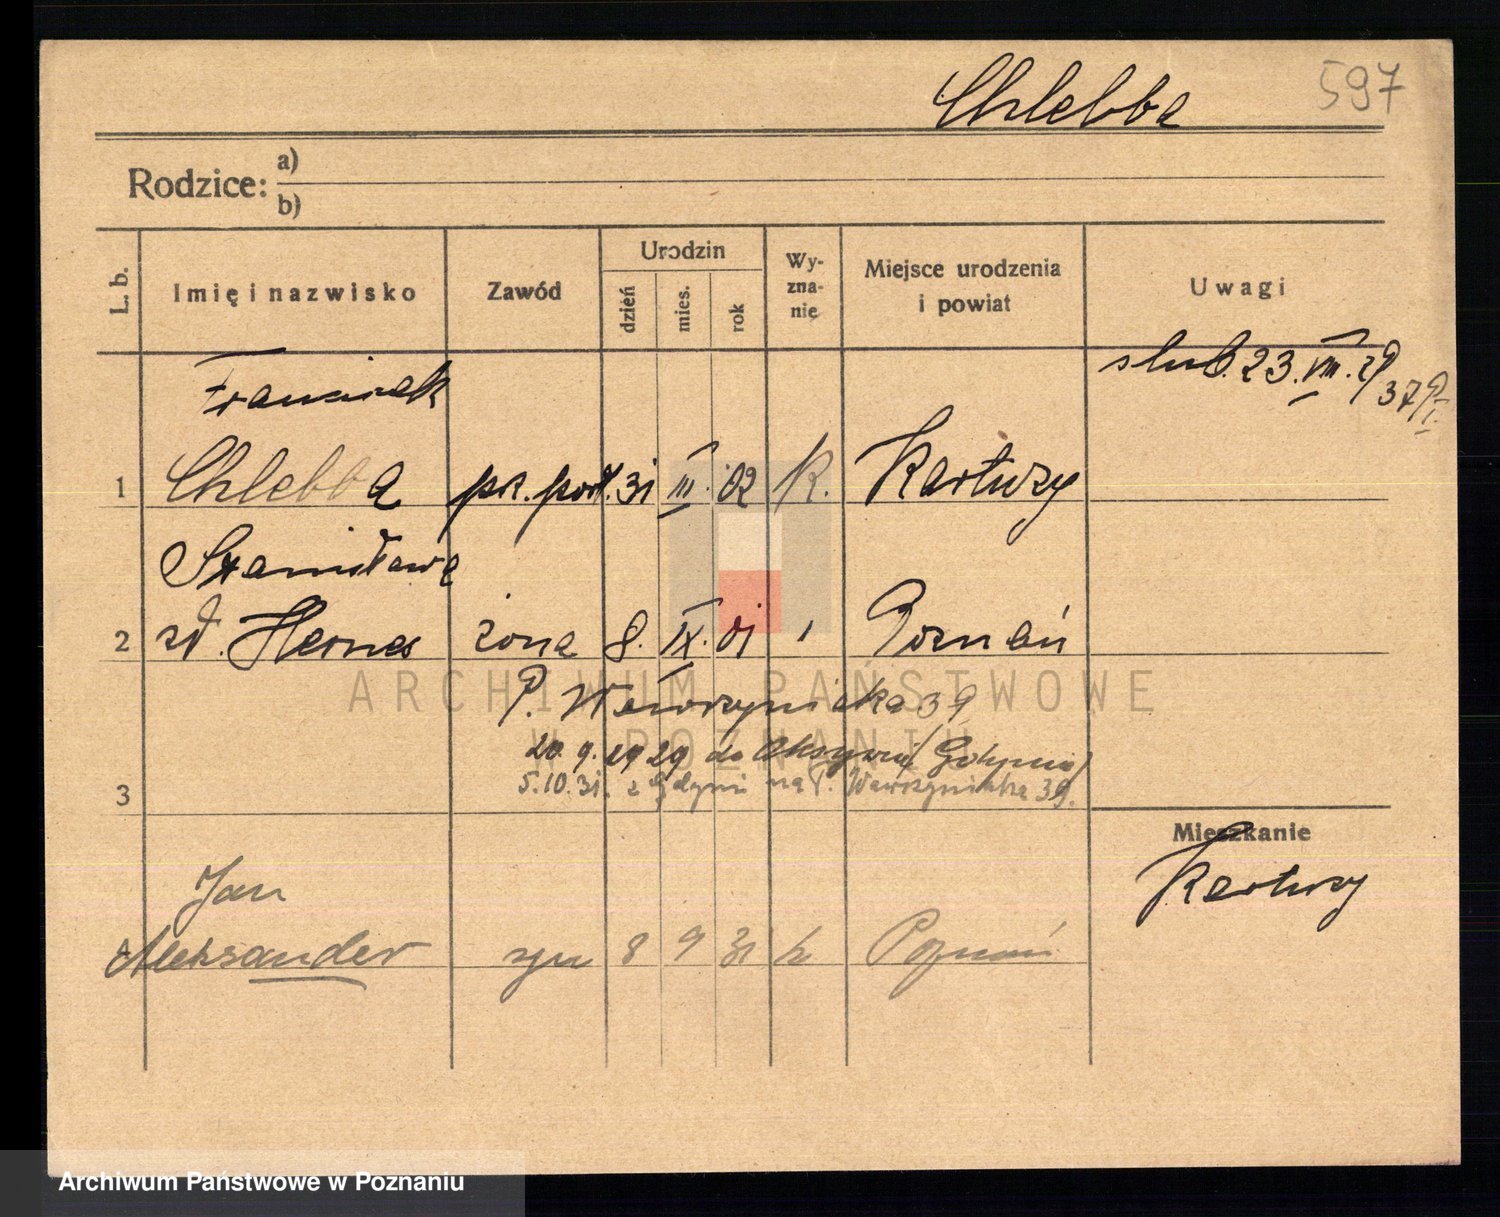 Chlebba 597
Rodzice: a)
b)
L. b. Imię i nazwisko Zawód Urodzin dzień mies. rok Wyznanie Miejsce urodzenia i powiat Uwagi
ślub. 23.VIII.29
Franciszek
1 Chlebba pr. port. 31 III. 02 K. Kartuzy
Stanisława
2 zd. Hernes żona 8. IX. 01 Poznań
P. Wawrzyniaka 39
20.9.1929 do Oksywie (Gdynia)
3 5.10.31. z Gdyni na P. Wawrzyniaka 39.
Mieszkanie
Kartuzy
Jan
4 Aleksander syn 8 9 31 k Poznań
ARCHIWUM PAŃSTWOWE
W POZNANIU
Archiwum Państwowe w Poznaniu